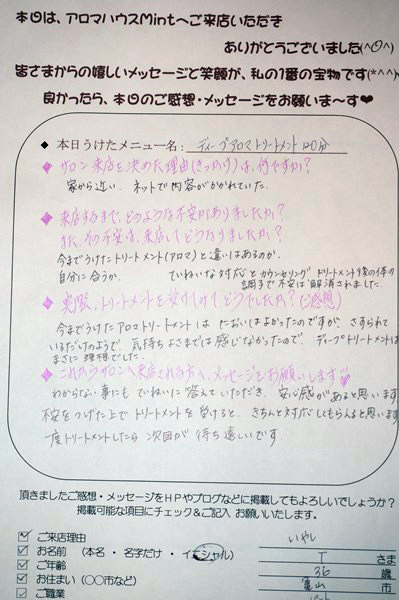 本日は、アロマハウスMintへご来店いただき
ありがとうございました(^○^)
皆さまからの嬉しいメッセージと笑顔が、私の1番の宝物です(*^^*)
良かったら、本日のご感想・メッセージをお願いま～す❤
◆ 本日うけたメニュー名: ディープアロマトリートメント 120分
◆ サロン来店を決めた理由(きっかけ)は、何ですか?
家から近い、ネットで内容がかかれていた。
◆ 来店するまで、どのような不安がありましたか?
また、その不安は、来店してどうなりましたか?
今までうけたトリートメント(アロマ)と違いはあるのか、
自分に合うか、 ていねいな対応とカウンセリング トリートメント後の体の
調子で不安は解消されました。
◆ 実際、トリートメントを受けてみて、どうでしたか?(ご感想)
今までうけたアロマトリートメントは においはよかったのですが、さすられて
いるだけのようで、気持ちよさまでは感じなかったので、ディープトリートメントは
まさに理想でした。
◆ これからサロンへ来店される方へ、メッセージをお願いします
わからない事にもていねいに答えていただき、安心感があると思います
不安をつげた上でトリートメントを受けると、きちんと対応してもらえると思います
一度トリートメントしたら次回が待ち遠しいです
頂きましたご感想・メッセージをHPやブログなどに掲載してもよろしいでしょうか?
掲載可能な項目にチェック＆ご記入 お願いいたします。
☑ ご来店理由 いやし
☑ お名前 (本名・名字だけ・イニシャル) T さま
☑ ご年齢 36 歳
☑ お住まい (○○市など) 亀山 市
☑ ご職業 パート